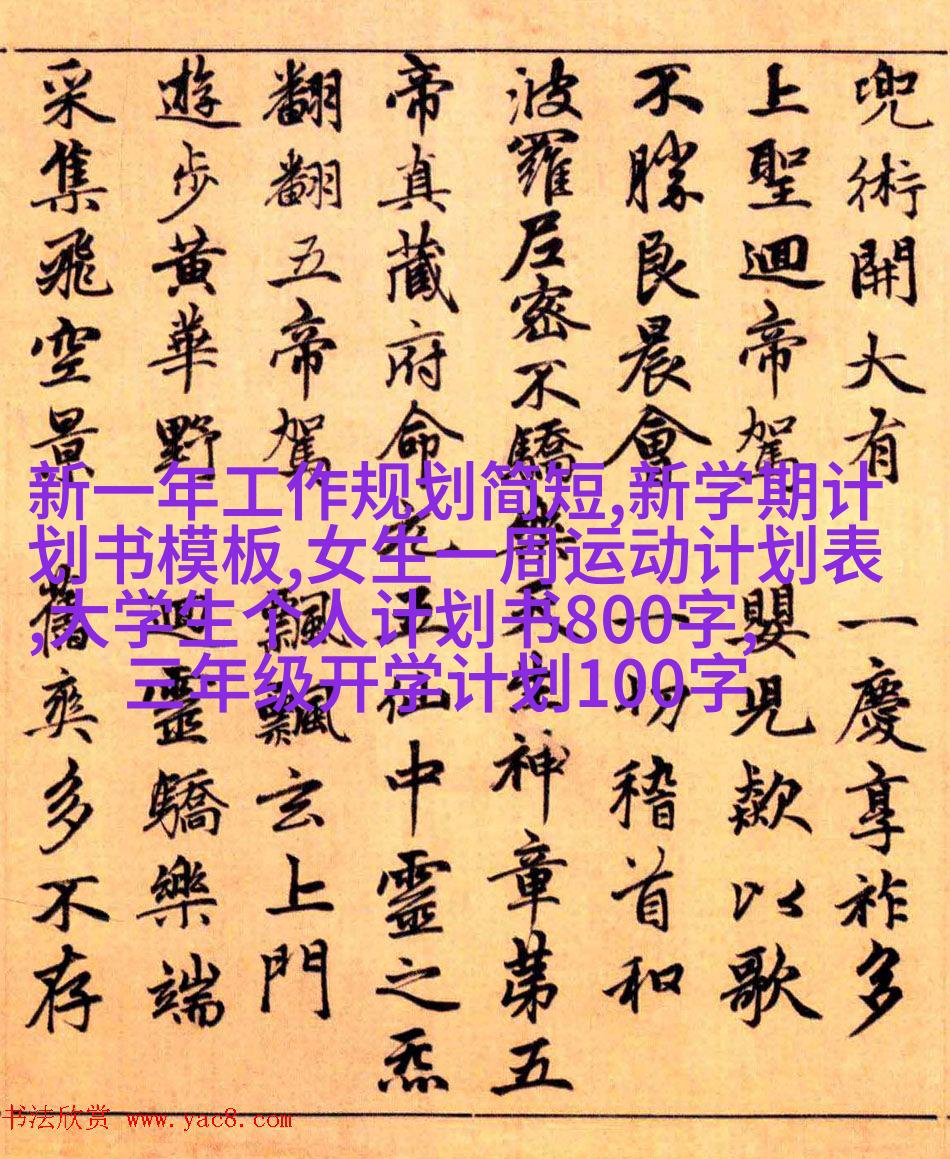 兜術開大有一慶享祚多
上聖迴帝駕嬰兒歎以歌
不勝良晨會一切稽首和
波羅尼密不驕樂天神章第五
帝真藏府命元王仙中靈之炁
翻翻五帝駕飄飄玄上門
遊步黃華野迴靈驕樂端
采集飛空景舊爽多不存
新一年工作规划简短,新学期计
划书模板,女生一周运动计划表
,大学生个人计划书800字,
三年级开学计划100字
书法欣赏 www.yac8.com